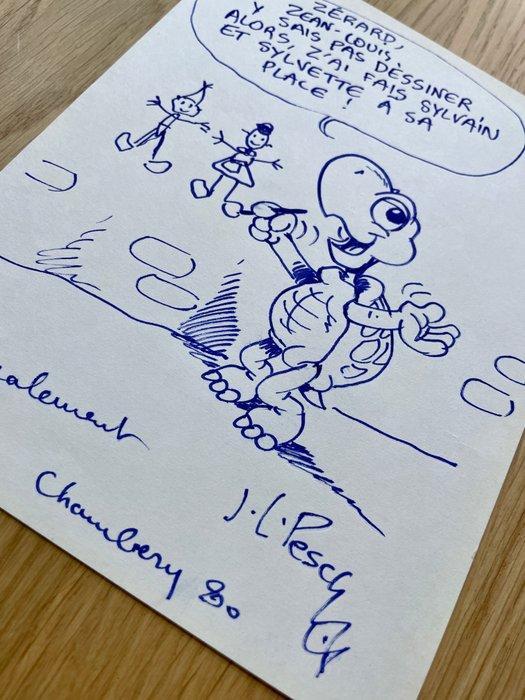 ZÉRARD,
Y ZEAN-LOUIS,
SAIS PAS DESSINER
ALORS, Z'AI FAIS SYLVAIN
ET SYLVETTE A SA
PLACE !
calement
J.L. Pesch
Chambery 80